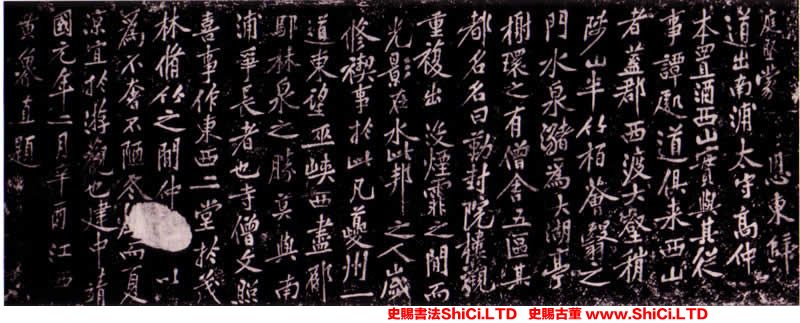 庭堅蒙恩東歸
道出南浦太守高仲
本置酒西山實與其從
事譚處道俱來西山
者蓋郡西渡大壑稍
陟山半竹柏薈翳之
門水泉瀦為大湖亭
榭環之有僧舍五區其
都名名曰勲封院樓觀
重複出沒煙霏之間而
光景在水此邦之人歲
修禊事於此凡夔州一
道東望巫峽西盡郁
鄢林泉之勝莫與南
浦爭長者也寺僧文照
喜事作東西二堂於茂
林脩竹之間仲 以
為不奢不陋冬 而夏
涼宜於游觀也建中靖
國元年二月辛酉江西
黃魯直題
史賜書法ShiCi.LTD 史賜古董 www.ShiCi.LTD